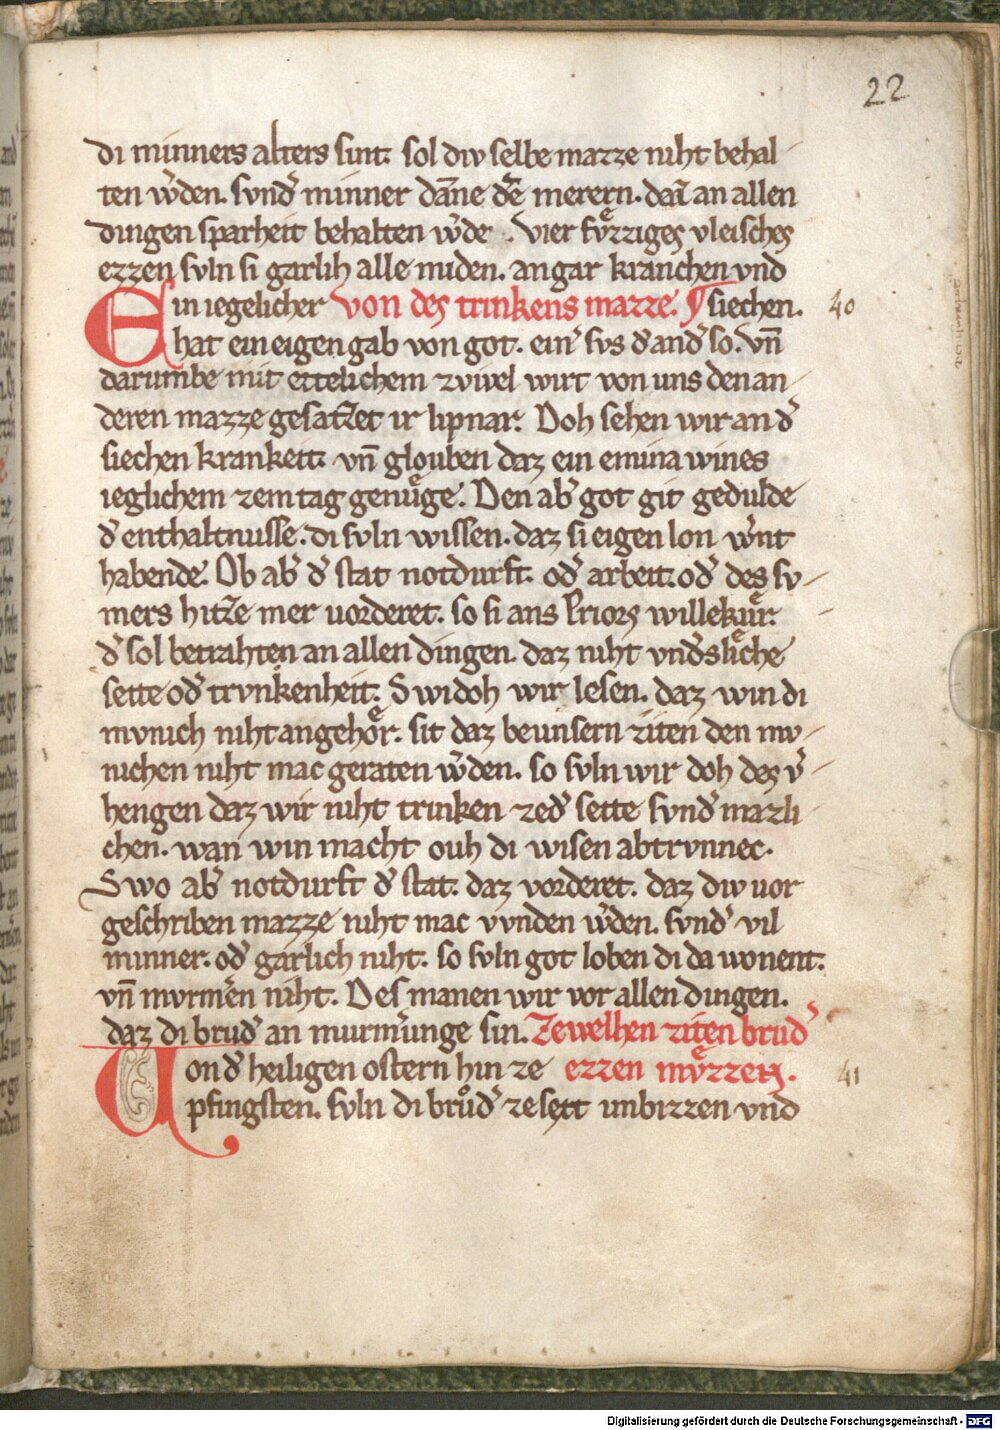 22
di minners alters sint. sol div selbe mazze niht behal-
ten w̉den. svnd̉ minner dan̄e dē merern. dar̄ an allen
dingen sparheit behalten w̉de. vier fvͤzziges vleisches
ezzen svln si garlih alle miden. an gar kranchen vnd
Ein iegelicher von des trinkens mazze. ¶ siechen. 40
hat ein eigen gab von got. ein̉ svs d̉ and̉ so. vn̄
darumbe mit ettelichem zvivel wirt von uns den an-
deren mazze gesatzet ir lipnar. Doh sehen wir an d̉
siechen krankeit. vn̄ glouben daz ein emina wines
ieglichem zem tag genuͤge. Den ab̉ got git gedulde
d̉ enthaltnusse. di svln wissen. daz si eigen lon w̉nt
habende. Ob ab̉ d̉ stat notdurft. od̉ arbeit. od̉ des sv-
mers hitze mer uorderet. so si ans Priors willekuͤr.
d̉ sol betrahten an allen dingen. daz niht vnd̉sliͤche
sette od̉ trvnkenheit. Swi doh wir lesen. daz win di
mvnich niht angehoͤr. sit daz be unsern ziten den mv-
nichen niht mac geraten w̉den. so svln wir doh des v̉-
hengen daz wir niht trinken zed̉ sette svnd̉ mazli-
chen. wan win macht ouh di wisen abtrvnnec.
Swo ab̉ notdurft d̉ stat. daz vorderet. daz div uor
geschriben mazze niht mac vvnden w̉den. svnd̉ vil
minner. od̉ garlich niht. so svln got loben di da wonent.
vn̄ mvrm̉en niht. Des manen wir vor allen dingen.
daz di brud̉ an murm̉unge sin. Zewelhen ziten brud̉
Von d̉ heiligen ostern hin ze ezzen mvͤzzen. 41
pfingsten. svln di bruͦd̉ ze sext inbizzen vnd
Digitalisierung gefördert durch die Deutsche Forschungsgemeinschaft - DFG